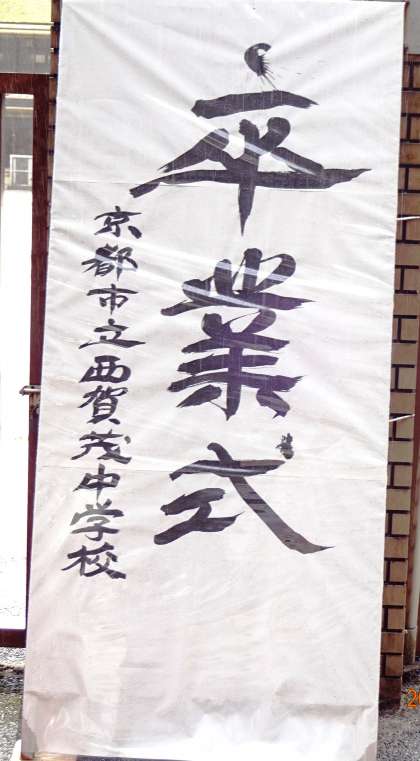 卒業式
京都市立西賀茂中学校